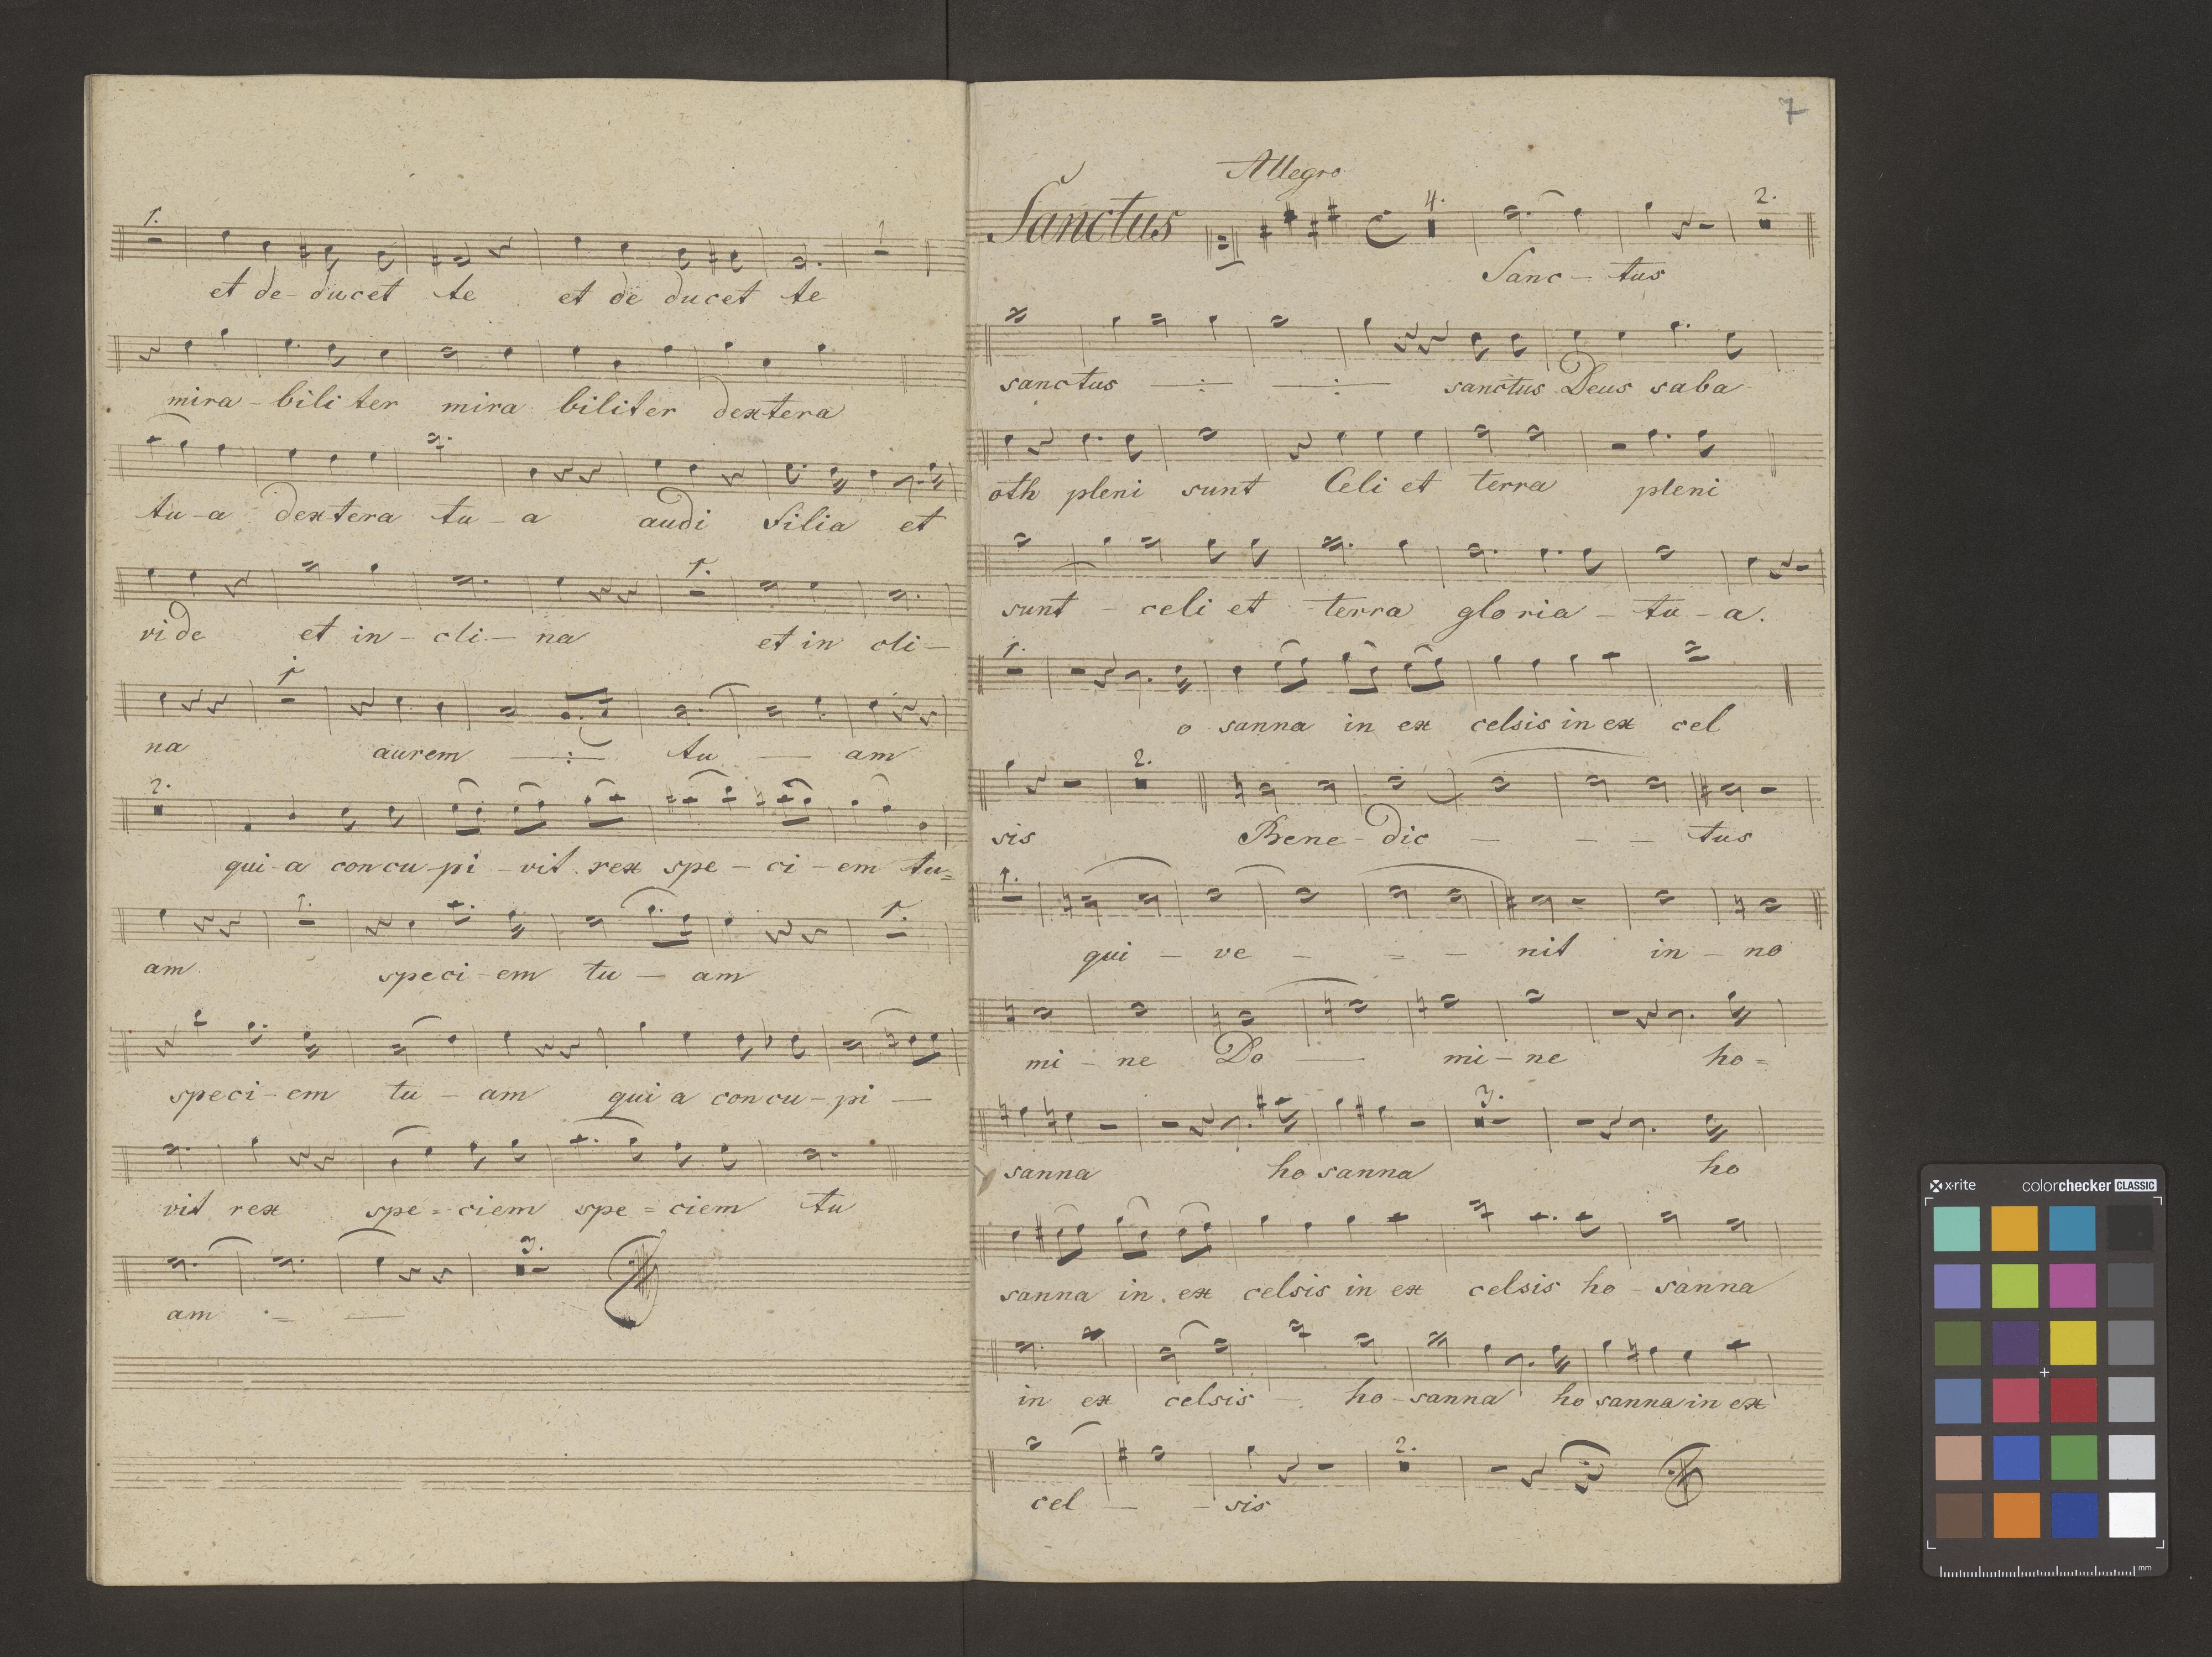 1.
1
et de-ducet te et de ducet te
mira-biliter mira biliter dextera
tu-a dextera tu-a audi filia et
1.
vide et in-cli-na et in cli-
1
na aurem tu — am
2.
qui-a concu-pi-vit rex spe-ci-em tu=
1.
1.
am speci-em tu-am
speci-em tu-am qui a concu-pi-
vit rex spe=ciem spe=ciem tu
3.
am - —
7
Allegro
Sanctus
4.
2.
Sanc-tus
sanctus sanctus Deus saba
oth pleni sunt Celi et terra pleni
sunt - celi et terra gloria-tu-a.
1.
o sanna in ex celsis in ex cel
2.
sis Bene-dic - - - tus
1.
qui - ve - - - nit in-no
mi-ne Do — mi-ne ho=
3.
sanna ho sanna ho
sanna in ex celsis in ex celsis ho-sanna
in ex celsis - ho-sanna ho sanna in ex
2.
cel — - sis
x-rite colorchecker CLASSIC
mm